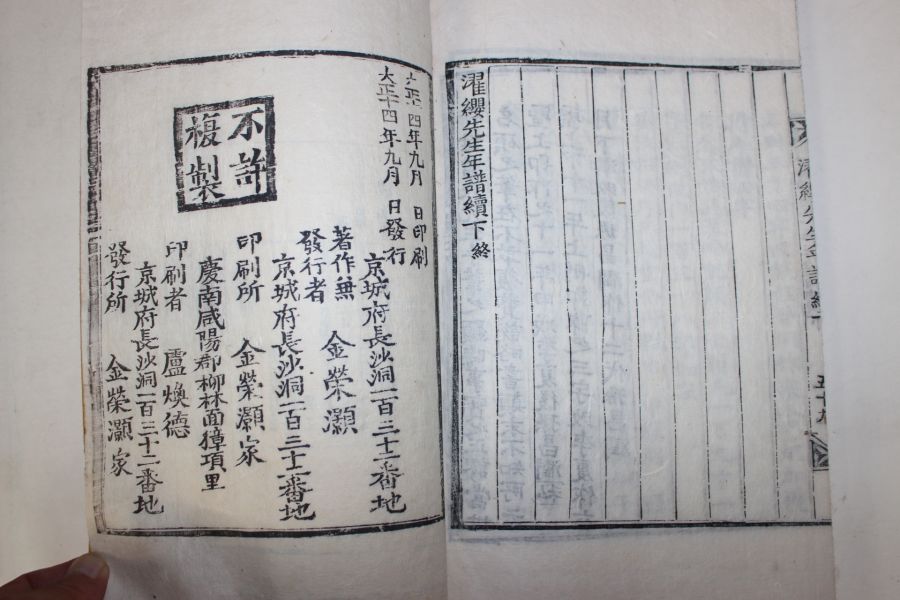 濯纓先生年譜續下
五十九
濯纓先生年譜續下 終
大正十四年九月 日印刷
大正十四年九月 日發行
不許
複製
京城府長沙洞一百三十二番地
著作兼
發行者 金榮灝
京城府長沙洞一百三十二番地
印刷所 金榮灝家
慶南咸陽郡柳林面獐項里
印刷者 盧煥德
京城府長沙洞一百三十二番地
發行所 金榮灝家